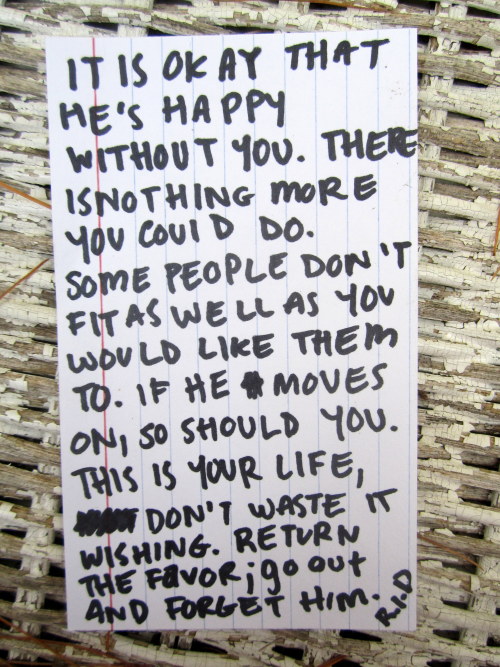 IT IS OKAY THAT
HE'S HAPPY
WITHOUT YOU. THERE
IS NOTHING MORE
YOU COULD DO.
SOME PEOPLE DON'T
FIT AS WELL AS YOU
WOULD LIKE THEM
TO. IF HE MOVES
ON, SO SHOULD YOU.
THIS IS YOUR LIFE,
DON'T WASTE IT
WISHING. RETURN
THE FAVOR; go out
AND FORGET HIM.
R.I.D